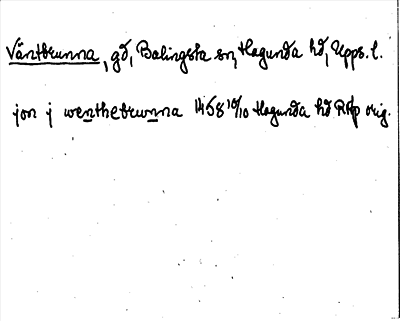 Väntbrunna, gd, Balingsta sn, Hagunda hd, Upps. l.
jon j wenthebrwnna 1458 10/10 Hagunda hd RAp orig.